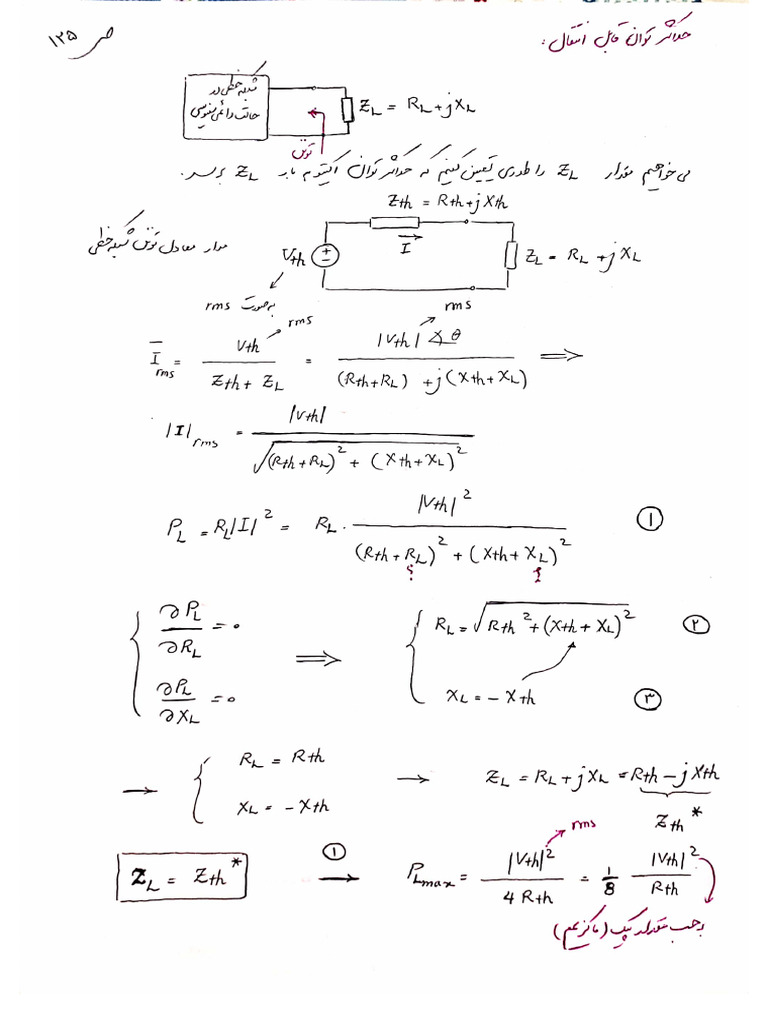 ص ۱۲۵
حداکثر توان قابل انتقال:
شبکه خطی در
حالت دائمی سینوسی
Z_L = R_L + jX_L
تونن
می خواهیم مقدار Z_L را طوری تعیین کنیم که حداکثر توان اکتیو به بار Z_L برسد.
Zth = Rth + jXth
مدار معادل تونن شبکه خطی
Vth
+
−
I
Z_L = R_L + jX_L
به صورت rms
rms
rms
I̅_rms = Vth / (Zth + Z_L) = |Vth| ∡θ / ((Rth+R_L) + j(Xth+X_L)) ⟹
|I|_rms = |Vth| / √((Rth+R_L)² + (Xth+X_L)²)
P_L = R_L|I|² = R_L · |Vth|² / ((Rth+R_L)² + (Xth+X_L)²) ①
؟ ؟
∂P_L/∂R_L = 0 ⟹ R_L = √(Rth² + (Xth+X_L)²) (۲)
∂P_L/∂X_L = 0 X_L = −Xth (۳)
→ { R_L = Rth → Z_L = R_L + jX_L = Rth − jXth
X_L = −Xth Zth*
rms
Z_L = Zth* ①→ P_Lmax = |Vth|² / 4Rth = 1/8 |Vth|² / Rth
بر حسب مقدار پیک (ماکزیمم)